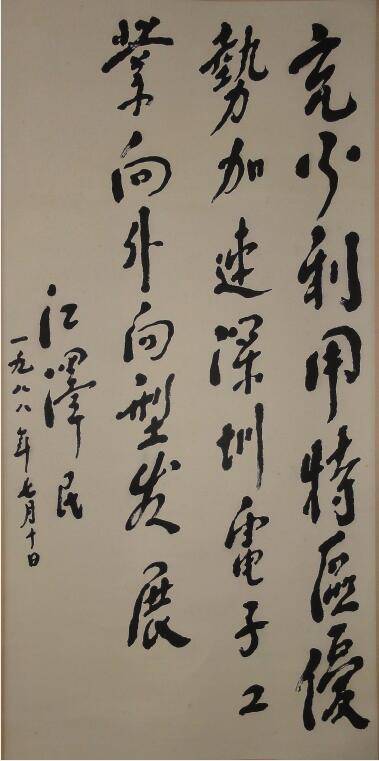 充分利用特區優
勢加速深圳電子工
業向外向型发展
江澤民
一九八八年七月十日